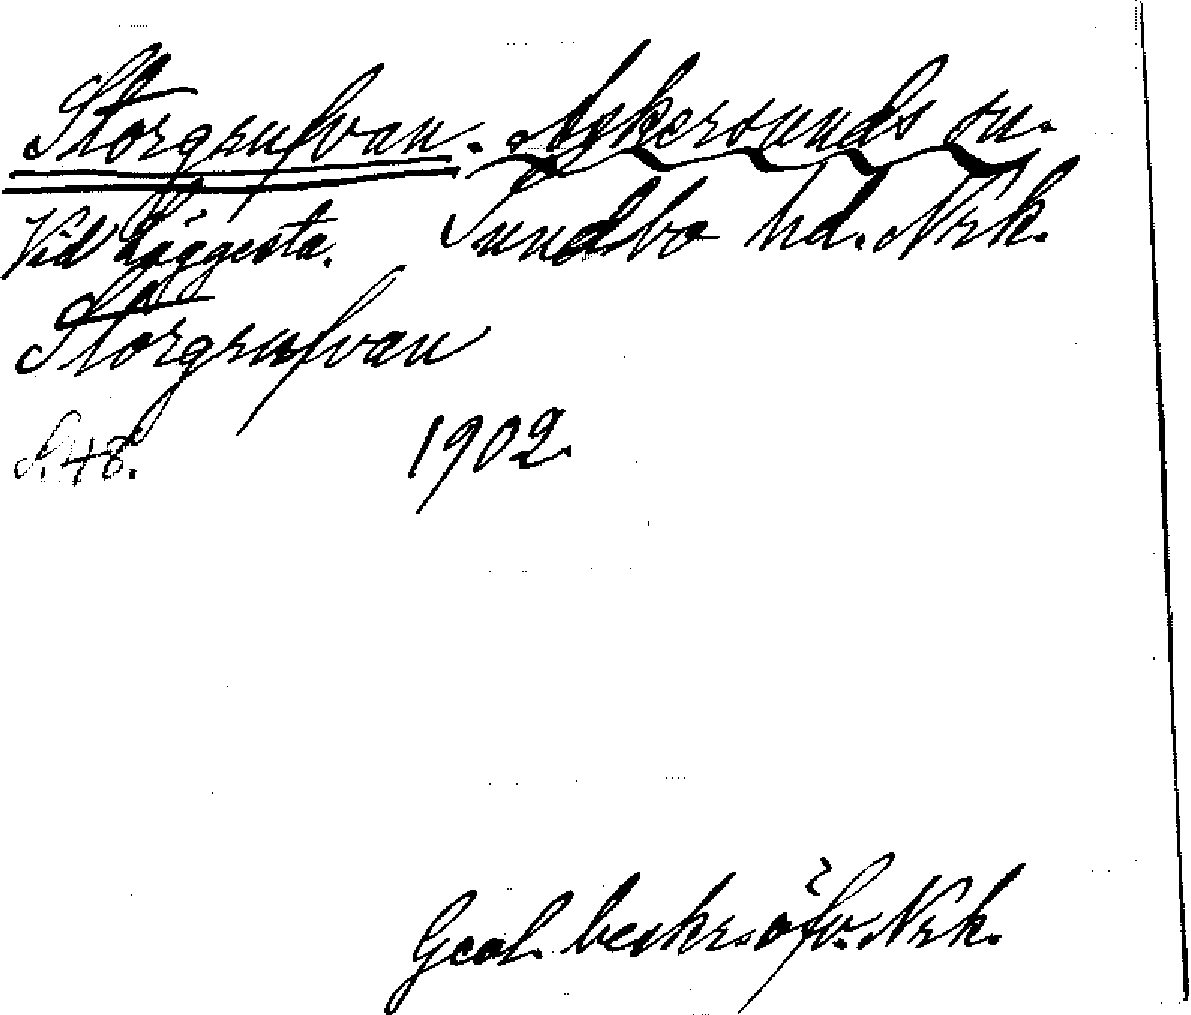 Storgrufvan. Askersunds sn.
Vid Läggesta. Sundbo hd. Nrk.
Storgrufvan
S. 48. 1902.
Geol. beskr. öfv. Nrk.